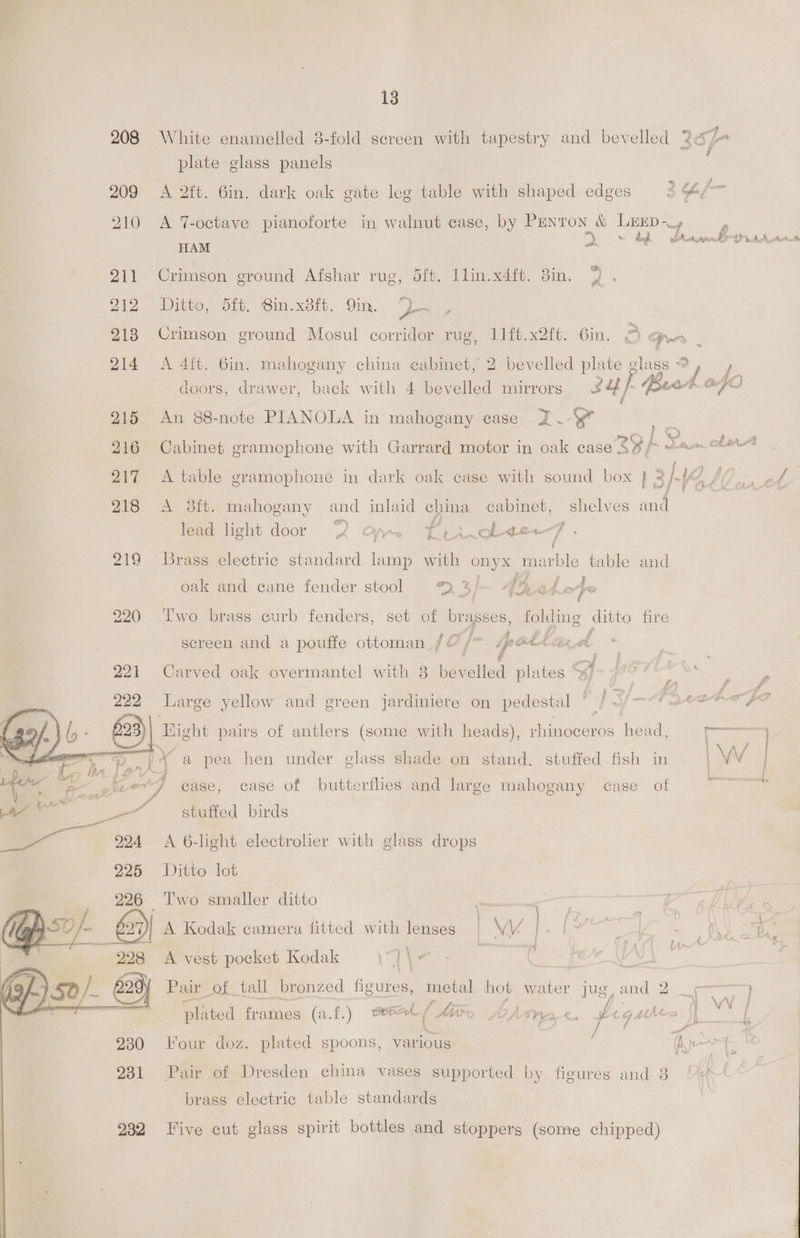 13
208 White enamelled 3-fold screen with tapestry and bevelled
plate glass panels
209 A 2ft. 6in. dark oak gate leg table with shaped edges
210 A 7-octave pianoforte in walnut case, by PENTON & LEED-
HAM
211 Crimson ground Afshar rug, 5ft. 11in.x4ft. 3in. 2.
212 Ditto, 5ft. 8in.x3ft. 9in.
213 Crimson ground Mosul corridor rug, 11ft.x2ft. 6in.
214 A 4ft. 6in. mahogany china cabinet, 2 bevelled plate glass
doors, drawer, back with 4 bevelled mirrors 34/-
215 An 88-note PIANOLA in mahogany case
216 Cabinet gramophone with Garrard motor in oak case 38/-
217 A table gramophone in dark oak case with sound box
218 A 3ft. mahogany and inlaid china cabinet, shelves and
lead light door
219 Brass electric standard lamp with onyx marble table and
oak and cane fender stool 23/-
220 Two brass curb fenders, set of brasses, folding ditto fire
screen and a pouffe ottoman 10/-
221 Carved oak overmantel with 3 bevelled plates
222 Large yellow and green jardiniere on pedestal
623 Eight pairs of antlers (some with heads), rhinoceros head,
a pea hen under glass shade on stand, stuffed fish in
case, case of butterflies and large mahogany case of
stuffed birds
224 A 6-light electrolier with glass drops
225 Ditto lot
226 Two smaller ditto
627 A Kodak camera fitted with lenses W
228 A vest pocket Kodak
50/- 629 Pair of tall bronzed figures, metal hot water jug, and 2
plated frames (a.f.) W
230 Four doz. plated spoons, various
231 Pair of Dresden china vases supported by figures and 3
brass electric table standards
232 Five cut glass spirit bottles and stoppers (some chipped)